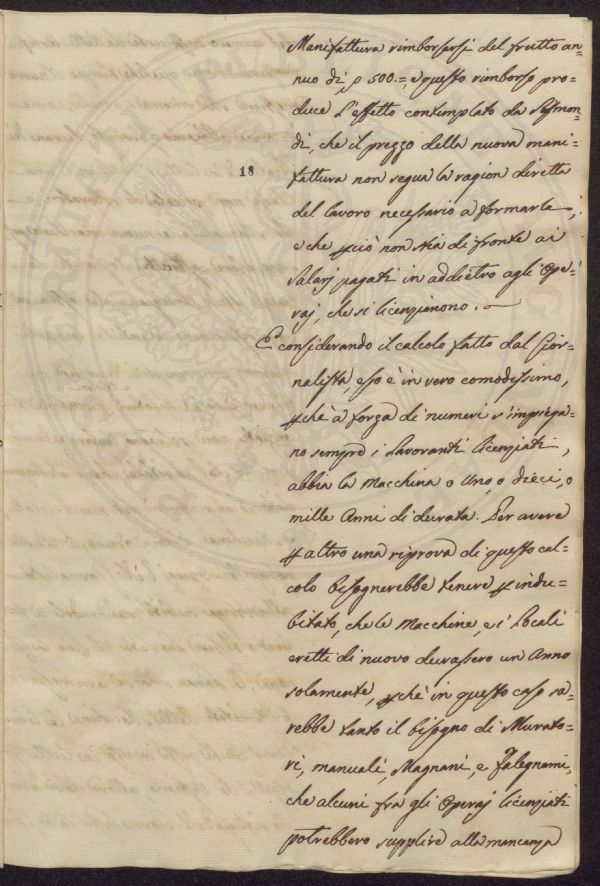 Manifattura rimborsarsi del frutto an-
nuo di 500.=, e questo rimborso pro-
duce l'effetto contemplato da Sismon-
di, che il prezzo della nuova mani-
18
fattura non segua la ragion diretta
del lavoro necessario a formarla,
e che pciò non stia di fronte ai
Salarj pagati in addietro agli Ope-
raj, che si licenziorono.
E considerando il calcolo fatto dal Gior-
nalista, esso è in vero comodissimo,
pchè a forza di numeri s'impiega-
no sempre i Lavoranti licenziati,
abbia la Macchina o Uno, o dieci, o
mille Anni di durata. Per avere
p altro una riprova di questo cal-
colo bisognerebbe tenere p indu-
bitato, che le Macchine, e i Locali
eretti di nuovo durassero un Anno
solamente, pchè in questo caso sa-
rebbe tanto il bisogno di Murato-
ri, manuali, Magnani, e Falegnami,
che alcuni fra gli Operaj licenziati
potrebbero supplire alla mancanza